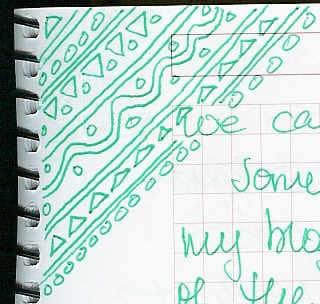 we ca
some
my blo
of the